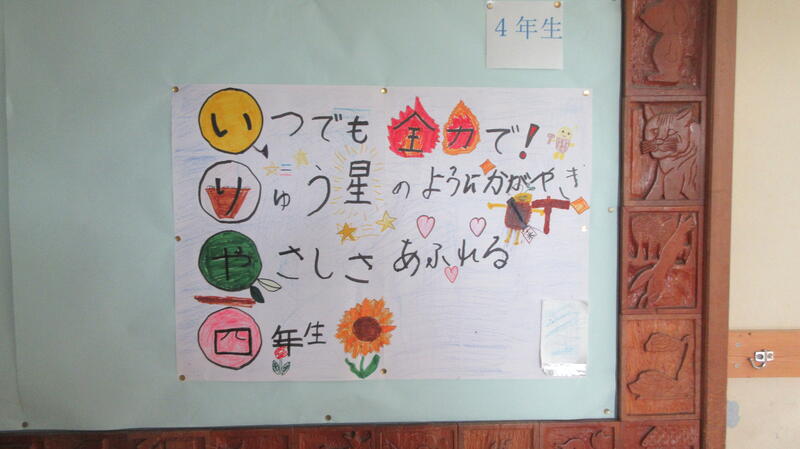 4年生
いつでも全力で!
りゅう星のようにかがやき
やさしさあふれる
四年生